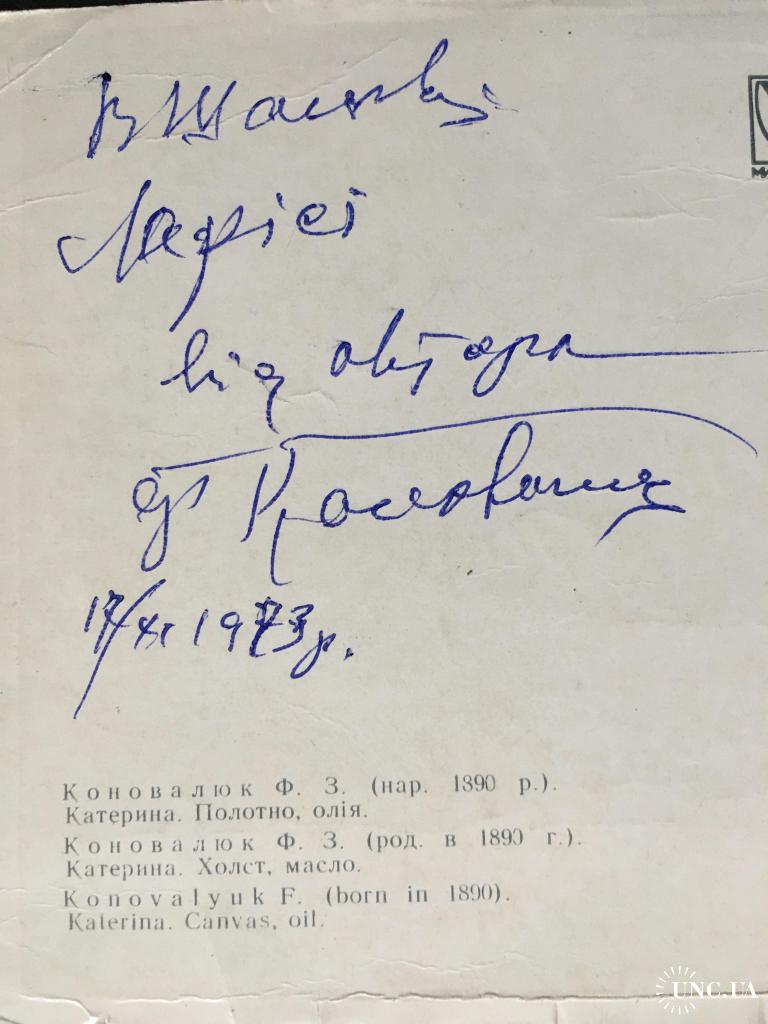 Ларісі
від автора
Ф Коновалюк
17/XI 1973 р.
Коновалюк Ф. З. (нар. 1890 р.).
Катерина. Полотно, олія.
Коновалюк Ф. З. (род. в 1890 г.).
Катерина. Холст, масло.
Konovalyuk F. (born in 1890).
Katerina. Canvas, oil.
UNC.UA